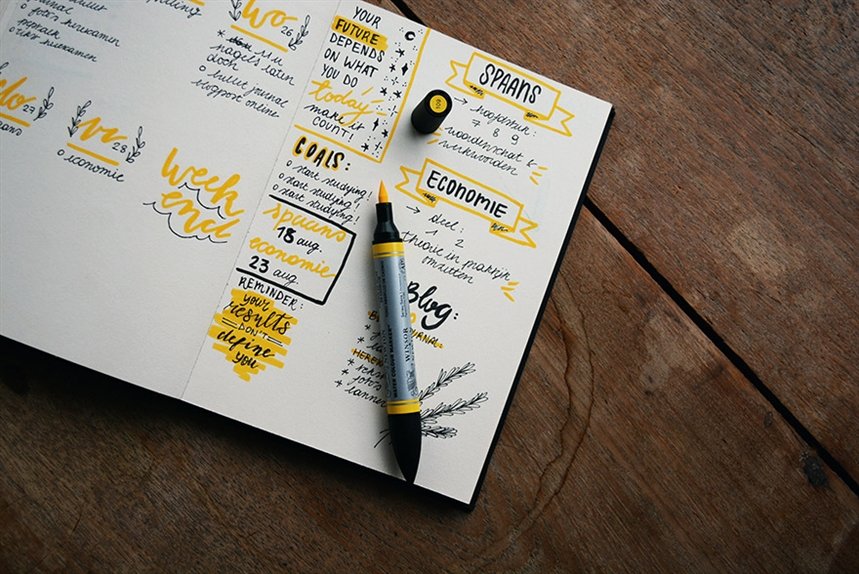 bullet
foto's herexamen
herexamen
wo
26
nagels laten
doen
o bullet journal
blogpost online
27
vr
28
o economie
week
end
YOUR
FUTURE
DEPENDS
ON WHAT
YOU DO
today
make it
COUNT!
GOALS:
o start studying!
o start studying!
o start studying!
spaans
18 aug.
economie
23 aug.
REMINDER:
your
results
DON'T
define
you
SPAANS
→ hoofdstuk:
7 8 9
→ woordenschat &
werkwoorden
ECONOMIE
→ deel:
1 2
theorie in praktijk
omzetten
Blog:
JOURNAL
WINSOR
WATER COLOUR MARKER